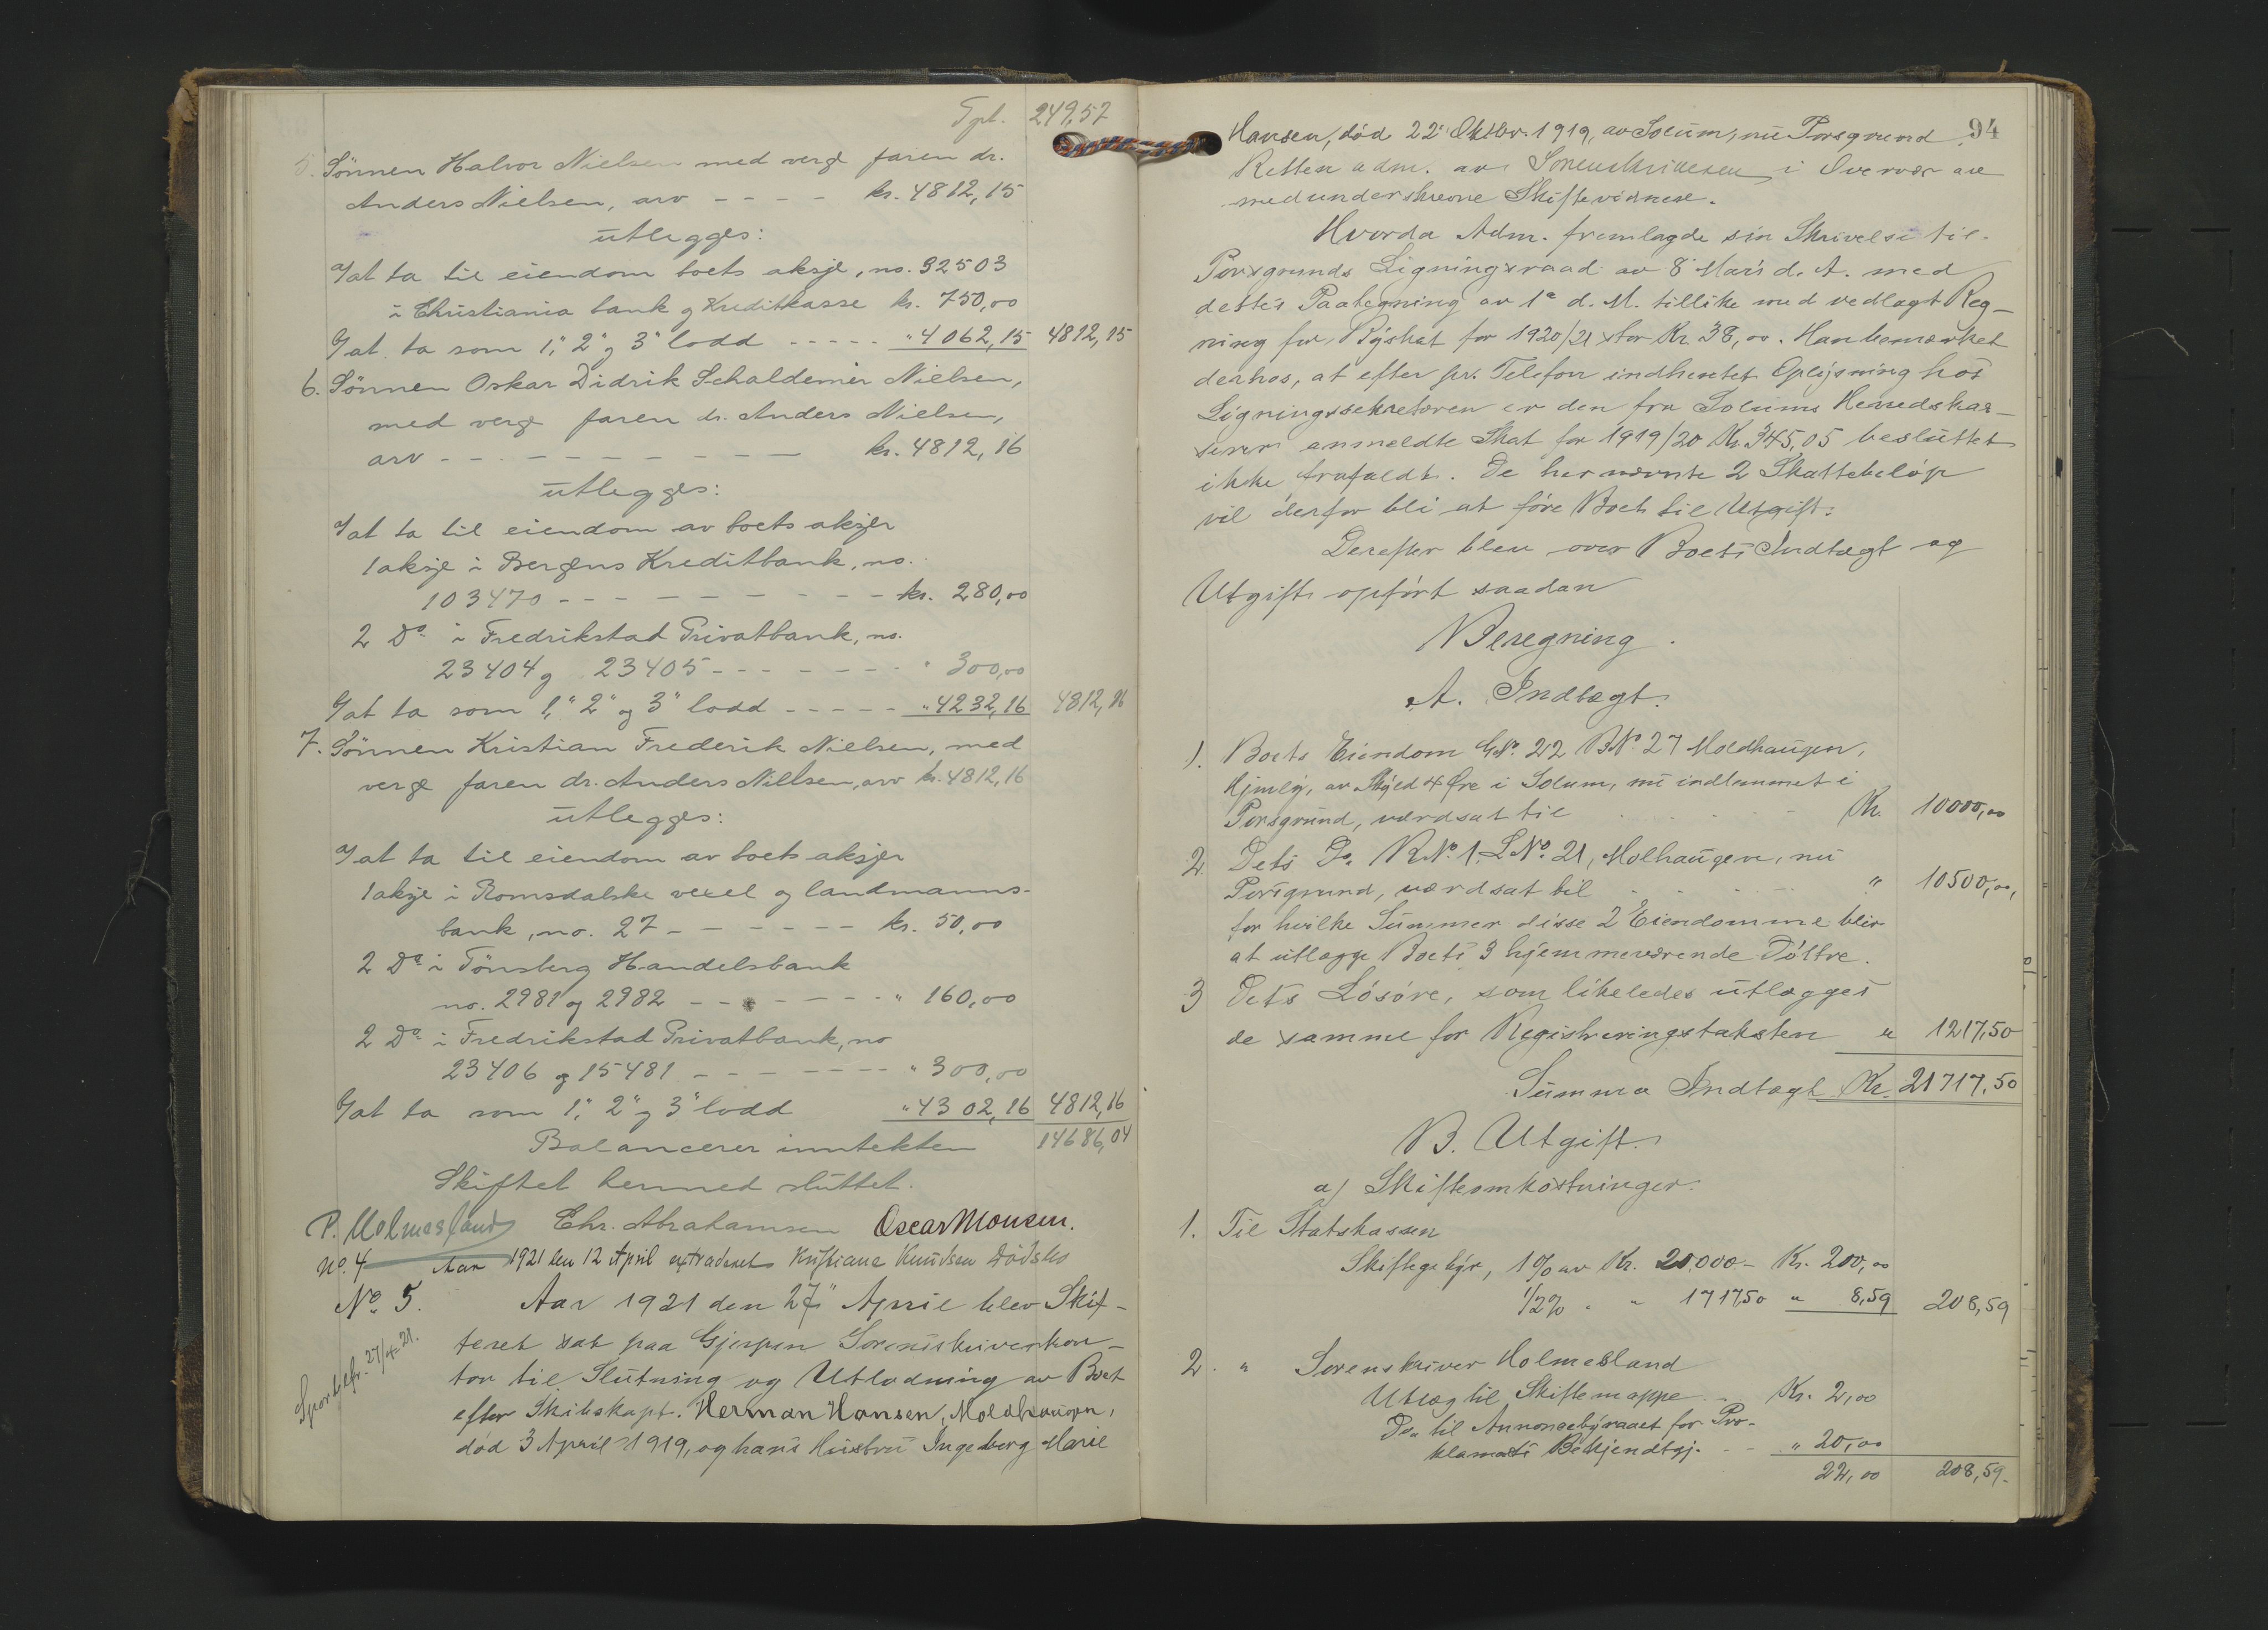 Tpt. 249,57
5. Sönnen Halvor Nielsen med verge faren dr.
Anders Nielsen, arv - - - - kr. 4812,15
utlegges:
I at ta til eiendom boets aksje, no. 32503
i Christiania bank og Kreditkasse kr. 750,00
I at ta som 1", 2" og 3" lodd - - - - - " 4062,15 4812,15
6. Sönnen Oskar Didrik Schaldemer Nielsen,
med verge faren dr. Anders Nielsen,
arv - - - - - - - - - - kr. 4812,16
utlegges:
I at ta til eiendom av boets aksjer
1 aksje i Bergens Kreditbank, no.
103470 - - - - - - - - - kr. 280,00
2 Do i Fredrikstad Privatbank, no.
23404 og 23405 - - - - - - - " 300,00
I at ta som 1", 2" og 3" lodd - - - - - " 4232,16 4812,16
7. Sönnen Kristian Frederik Nielsen, med
verge faren dr. Anders Nielsen, arv kr. 4812,16
utlegges:
I at ta til eiendom av boets aksjer
1 aksje i Romsdalske vexel og landmanns-
bank, no. 27 - - - - - - kr. 50,00
2 Do i Tönsberg Handelsbank
no. 2981 og 2982 - - - - - - - " 160,00
2 Do i Fredrikstad Privatbank, no
23406 og 15481 - - - - - - - " 300,00
I at ta som 1", 2" og 3" lodd " 4302,16 4812,16
Balancerer inntekten 14686,04
Skiftet hermed sluttet.
P. Holmesland Chr. Abrahamsen Oscar Monsen.
No. 4 Aar 1921 den 12 April extraderet Kristiane Knudsen Dödsbo
No. 5. Aar 1921 den 27" April blev Skif-
teret sat paa Gjerpen Sorenskriverkon-
tor til Slutning og Utlodning av Boet
efter Skibskapt. Herman Hansen, Moldhaugen,
död 3 April 1919, og hans Hustru Ingeborg Marie
27/4 21.
94
Hansen, död 22 Oktbr. 1919, av Solum, nu Porsgrund.
Retten adm. av Sorenskriveren i Overvær av
medunderskrevne Skiftevidner.
Hvorda Adm. fremlagde sin Skrivelse til
Porsgrunds Ligningsraad av 8 Mars d. A. med
dettes Paategning av 1e d. M. tillike med vedlagt Reg-
ning for Byskat for 1920/21 stor Kr. 38,00. Han bemærket
derhos, at efter pr. Telefon indhentet Oplysning hos
Ligningssekretæren er den fra Solums Herredskas-
serer anmeldte Skat for 1919/20 Kr. 345,05 besluttet
ikke frafaldt. De her nævnte 2 Skattebelöp
vil derfor bli at före Boet til Utgift.
Derefter blev over Boets Indtægt og
Utgift opfört saadan
Beregning.
A. Indtægt.
1. Boets Eiendom GNo. 22 BNo. 27 Moldhaugen,
av Skyld 4 Öre i Solum, nu indlemmet i
Porsgrund, værdsat til - - - Kr. 10000,00
2. Dets Do. RNo. 1, LNo. 21, Molhaugen, nu
Porsgrund, værdsat til - - - " 10500,00,
for hvilke Summer disse 2 Eiendomme blir
at utlægge Boets 3 hjemmeværende Döttre.
3 Dets Lösöre, som likeledes utlægges
de samme for Registreringstaksten " 1217,50
Summa Indtægt Kr. 21717,50
B. Utgift.
a) Skifteomkostninger.
1. Til Statskassen
Skiftegebyr, 1% av Kr. 20.000 - Kr. 200,00
1/2% " " 1717,50 " 8,59 208,59
2. " Sorenskriver Holmesland
Utlæg til Skiftemappe - Kr. 2,00
Do. til Annoncebyraaet for Pro-
klamats Bekjendtgj. - - " 20,00
22,00 208,59